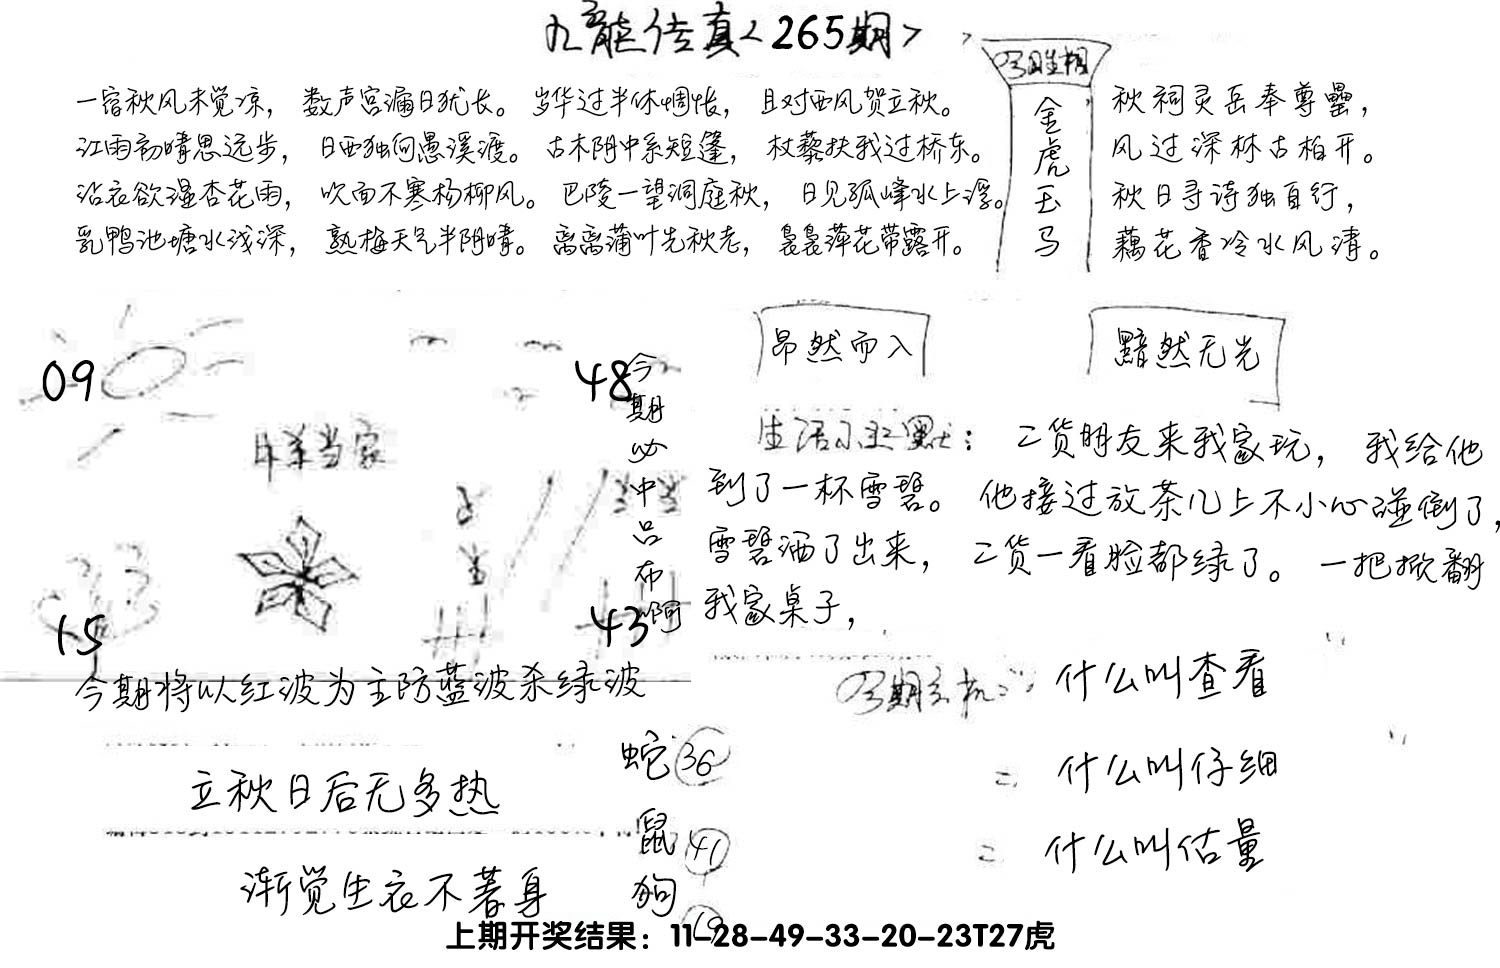 九龙传真<265期>
今日生相
金虎玉马
一宿秋风未觉凉，数声宫漏日犹长。岁华过半休惆怅，且对西风贺立秋。
江雨初晴思远步，日西独向愚溪渡。古木阴中系短篷，杖藜扶我过桥东。
沾衣欲湿杏花雨，吹面不寒杨柳风。巴陵一望洞庭秋，日见孤峰水上浮。
乳鸭池塘水浅深，熟梅天气半阴晴。离离蒲叶先秋老，袅袅萍花带露开。
秋祠灵岳奉尊罍，
风过深林古柏开。
秋日寻诗独自行，
藕花香冷水风清。
昂然而入
黯然无光
09
48
15
43
今期必中吕布啊
生活小幽默：二货朋友来我家玩，我给他
到了一杯雪碧。他接过放茶几上不小心碰倒了，
雪碧洒了出来，二货一看脸都绿了。一把掀翻
我家桌子，
今期将以红波为主防蓝波杀绿波
今期玄机：什么叫查看
二 什么叫仔细
二 什么叫估量
立秋日后无多热
渐觉生衣不著身
蛇 36
鼠 41
狗 19
上期开奖结果：11-28-49-33-20-23T27虎